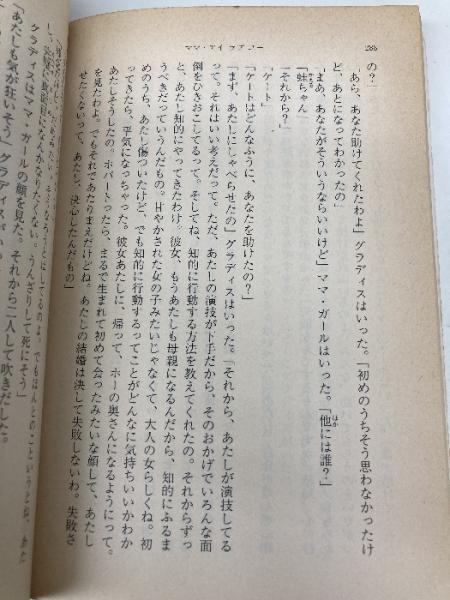 286
ママ・アイラブユー
の？」
「あら、あなた助けてくれたわよ」グラディスはいった。「初めのうちそう思わなかったけ
ど、あとになってわかったの」
「まあ、あなたがそういうならいいけど」ママ・ガールはいった。「他には誰？」
「妹ちゃん」
「それから？」
「ケート」
「ケートはどんなふうに、あなたを助けたの？」
「まず、あたしにしゃべらせたの」グラディスはいった。「それから、あたしが演技してる
って。それはいい考えだって。ただ、あたしの演技が下手だから、そのおかげでいろんな面
倒をひきおこしてるって。そしてね、知的に行動する方法を教えてくれたの。それからずっ
と、あたし知的にやってきたわけ。彼女、もうあたしも母親になるんだから、知的にふるま
うべきだっていうんだもの。甘やかされた女の子みたいじゃなくて、大人の女らしくね。初
めのうち、あたし傷ついたけど、でも知的に行動するってことがどんなに気持ちいいかわか
ってきたら、平気になっちゃった。彼女あたしに、帰って、ホーの奥さんになるようにって。
あたしそうしたの。ホバートったら、まるで生まれて初めて会ったみたいな顔して、あたし
を見たわよ。でもそれであたりまえだけどね。あたしの結婚は決して失敗しないわ。失敗さ
せたくないって、あたし、決心したんだもの」
グラディスはママ・ガールの顔を見た。それから二人して吹きだした。
「あたしも気が狂いそう」グラディスがいい
なんかなりたくない。うんざりして死にそう」
してるのよ。でもほんとのこというとね、あた